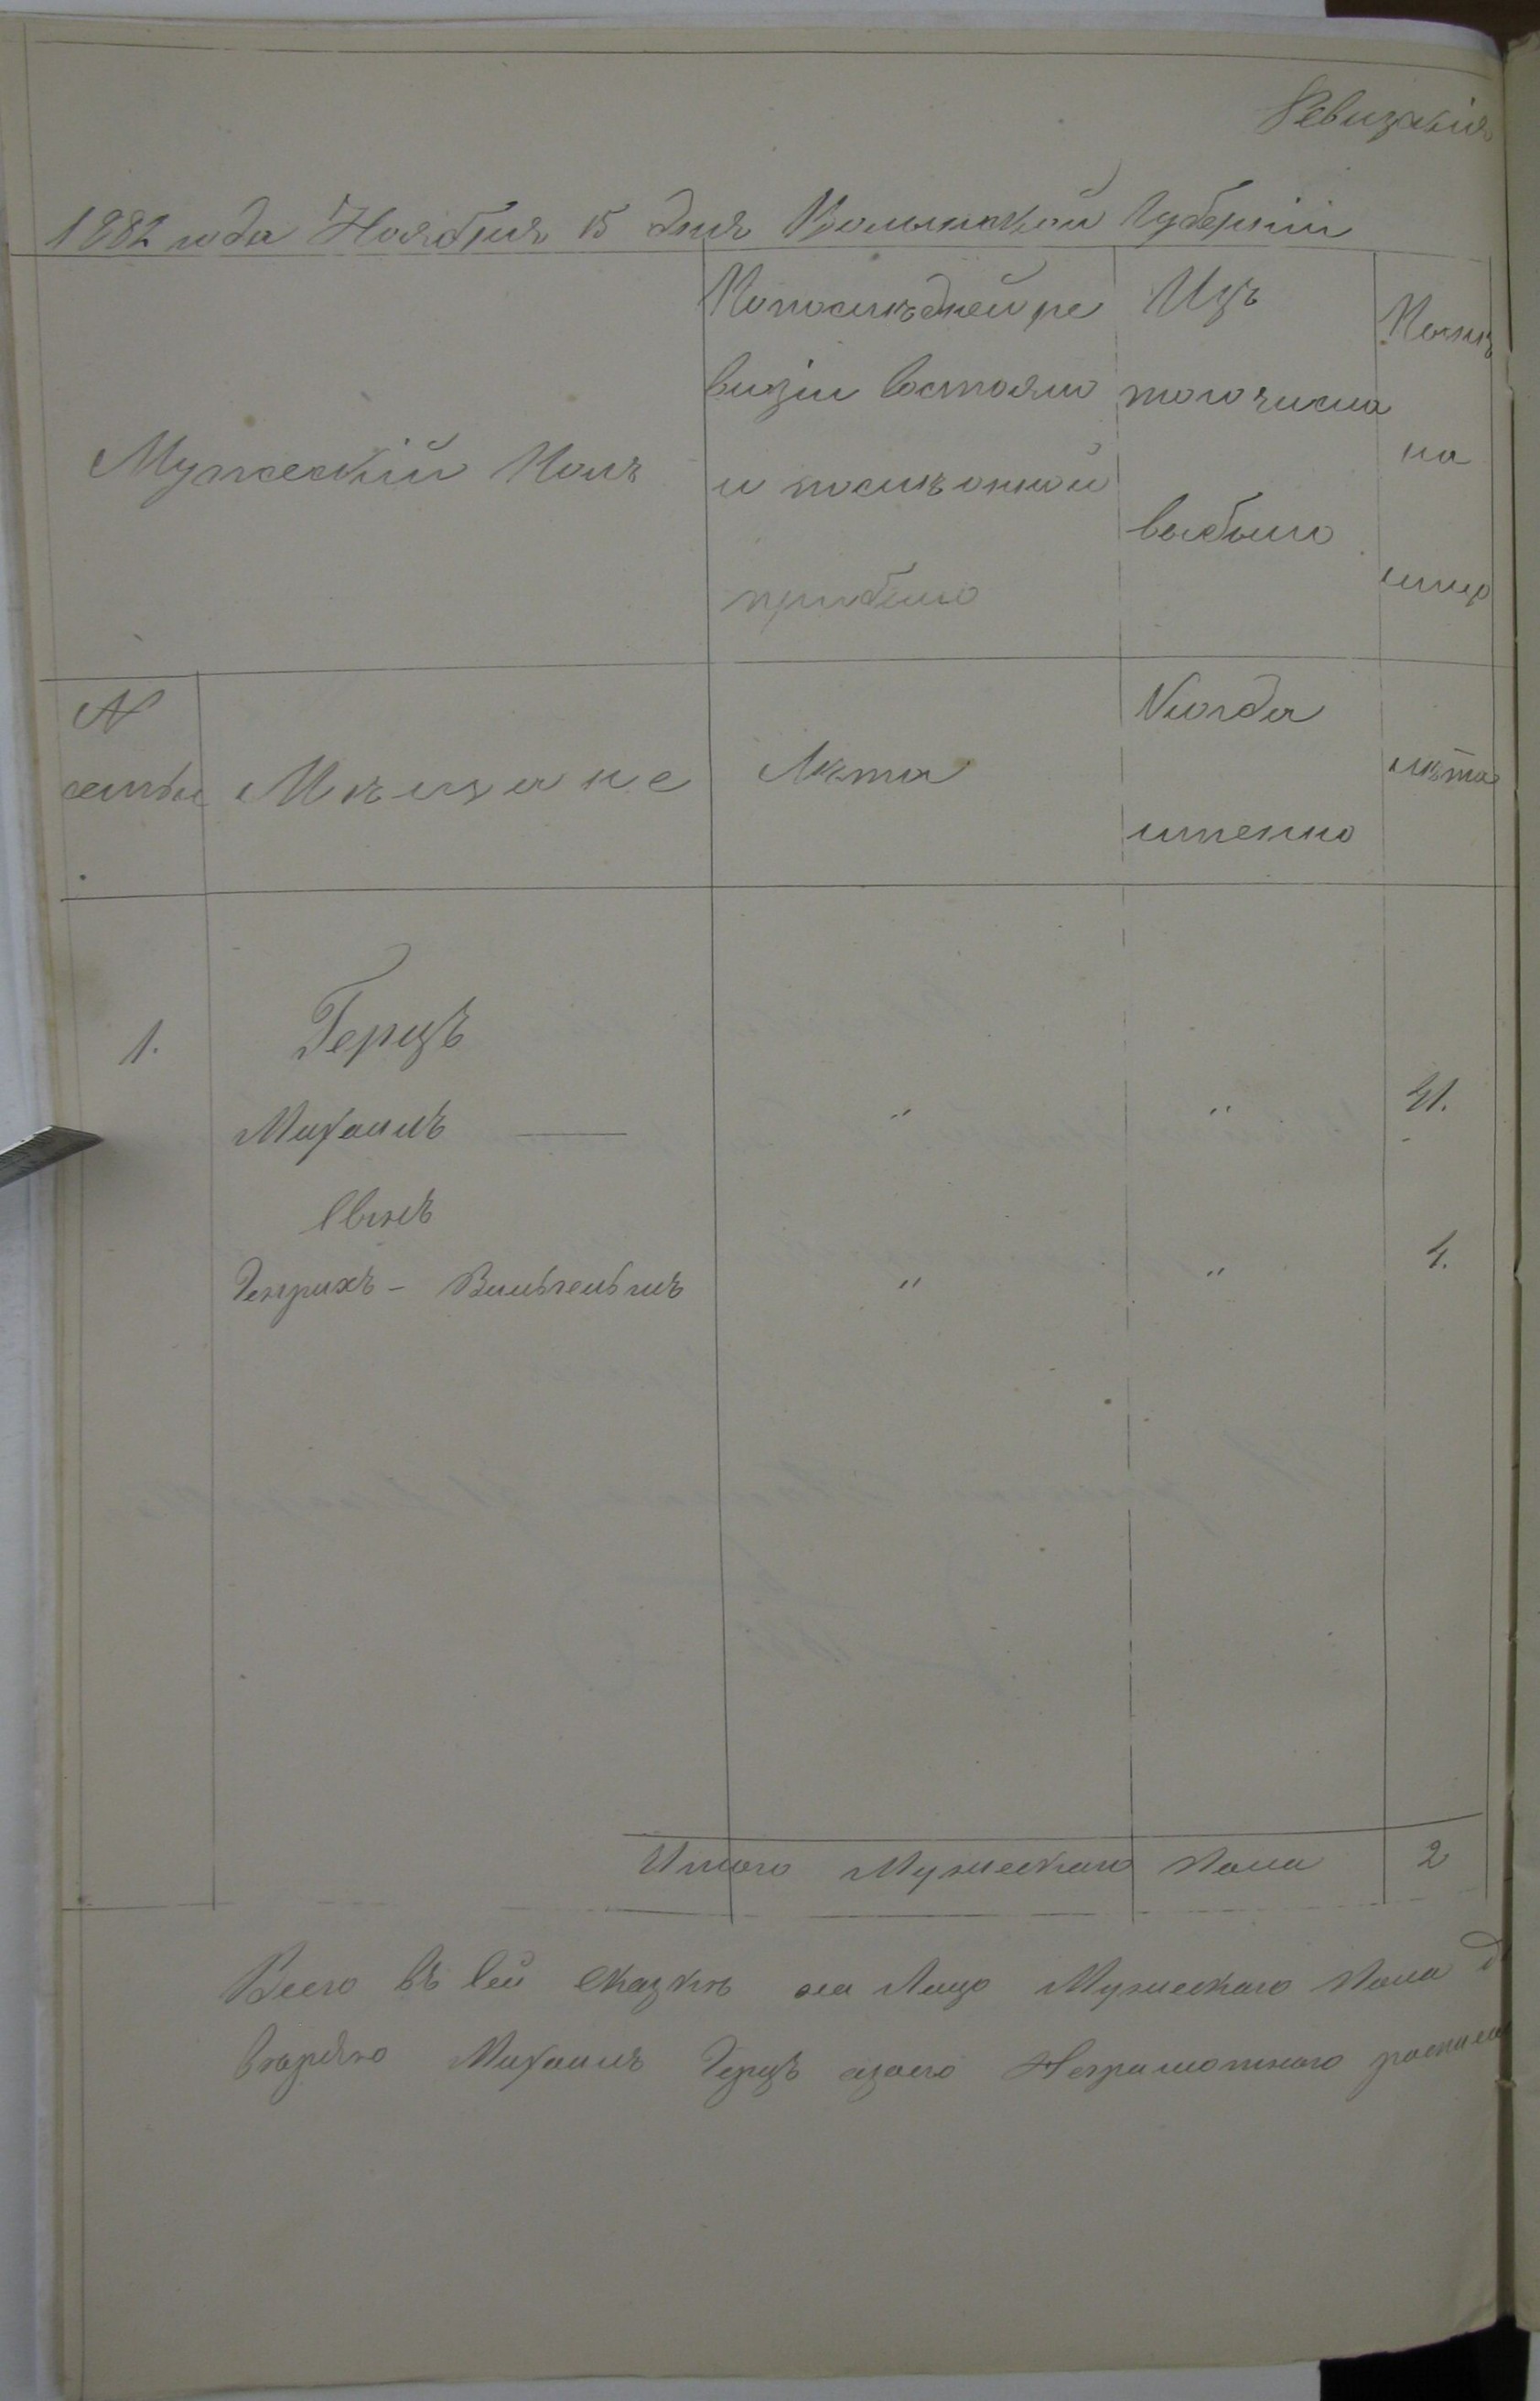 Ревизкія
1882 года Ноября 15 дня Волынской Губерніи
Мужескій Полъ
По послѣдней ре
визіи состояло
и послѣ онной
прибыло
Изъ
того числа
выбыло
Нынѣ
на
лицо
№
семьи
Мѣщане
Лѣта
Когда
именно
лѣта
1.
Герцъ
Михаилъ —— " " 41.
Сынъ
Генрихъ - Вильгельмъ " " 4.
Итого Мужескаго пола 2
Всего въ сей сказкѣ на Лицо Мужескаго пола
Михаилъ Герцъ азаего Неграмотнаго